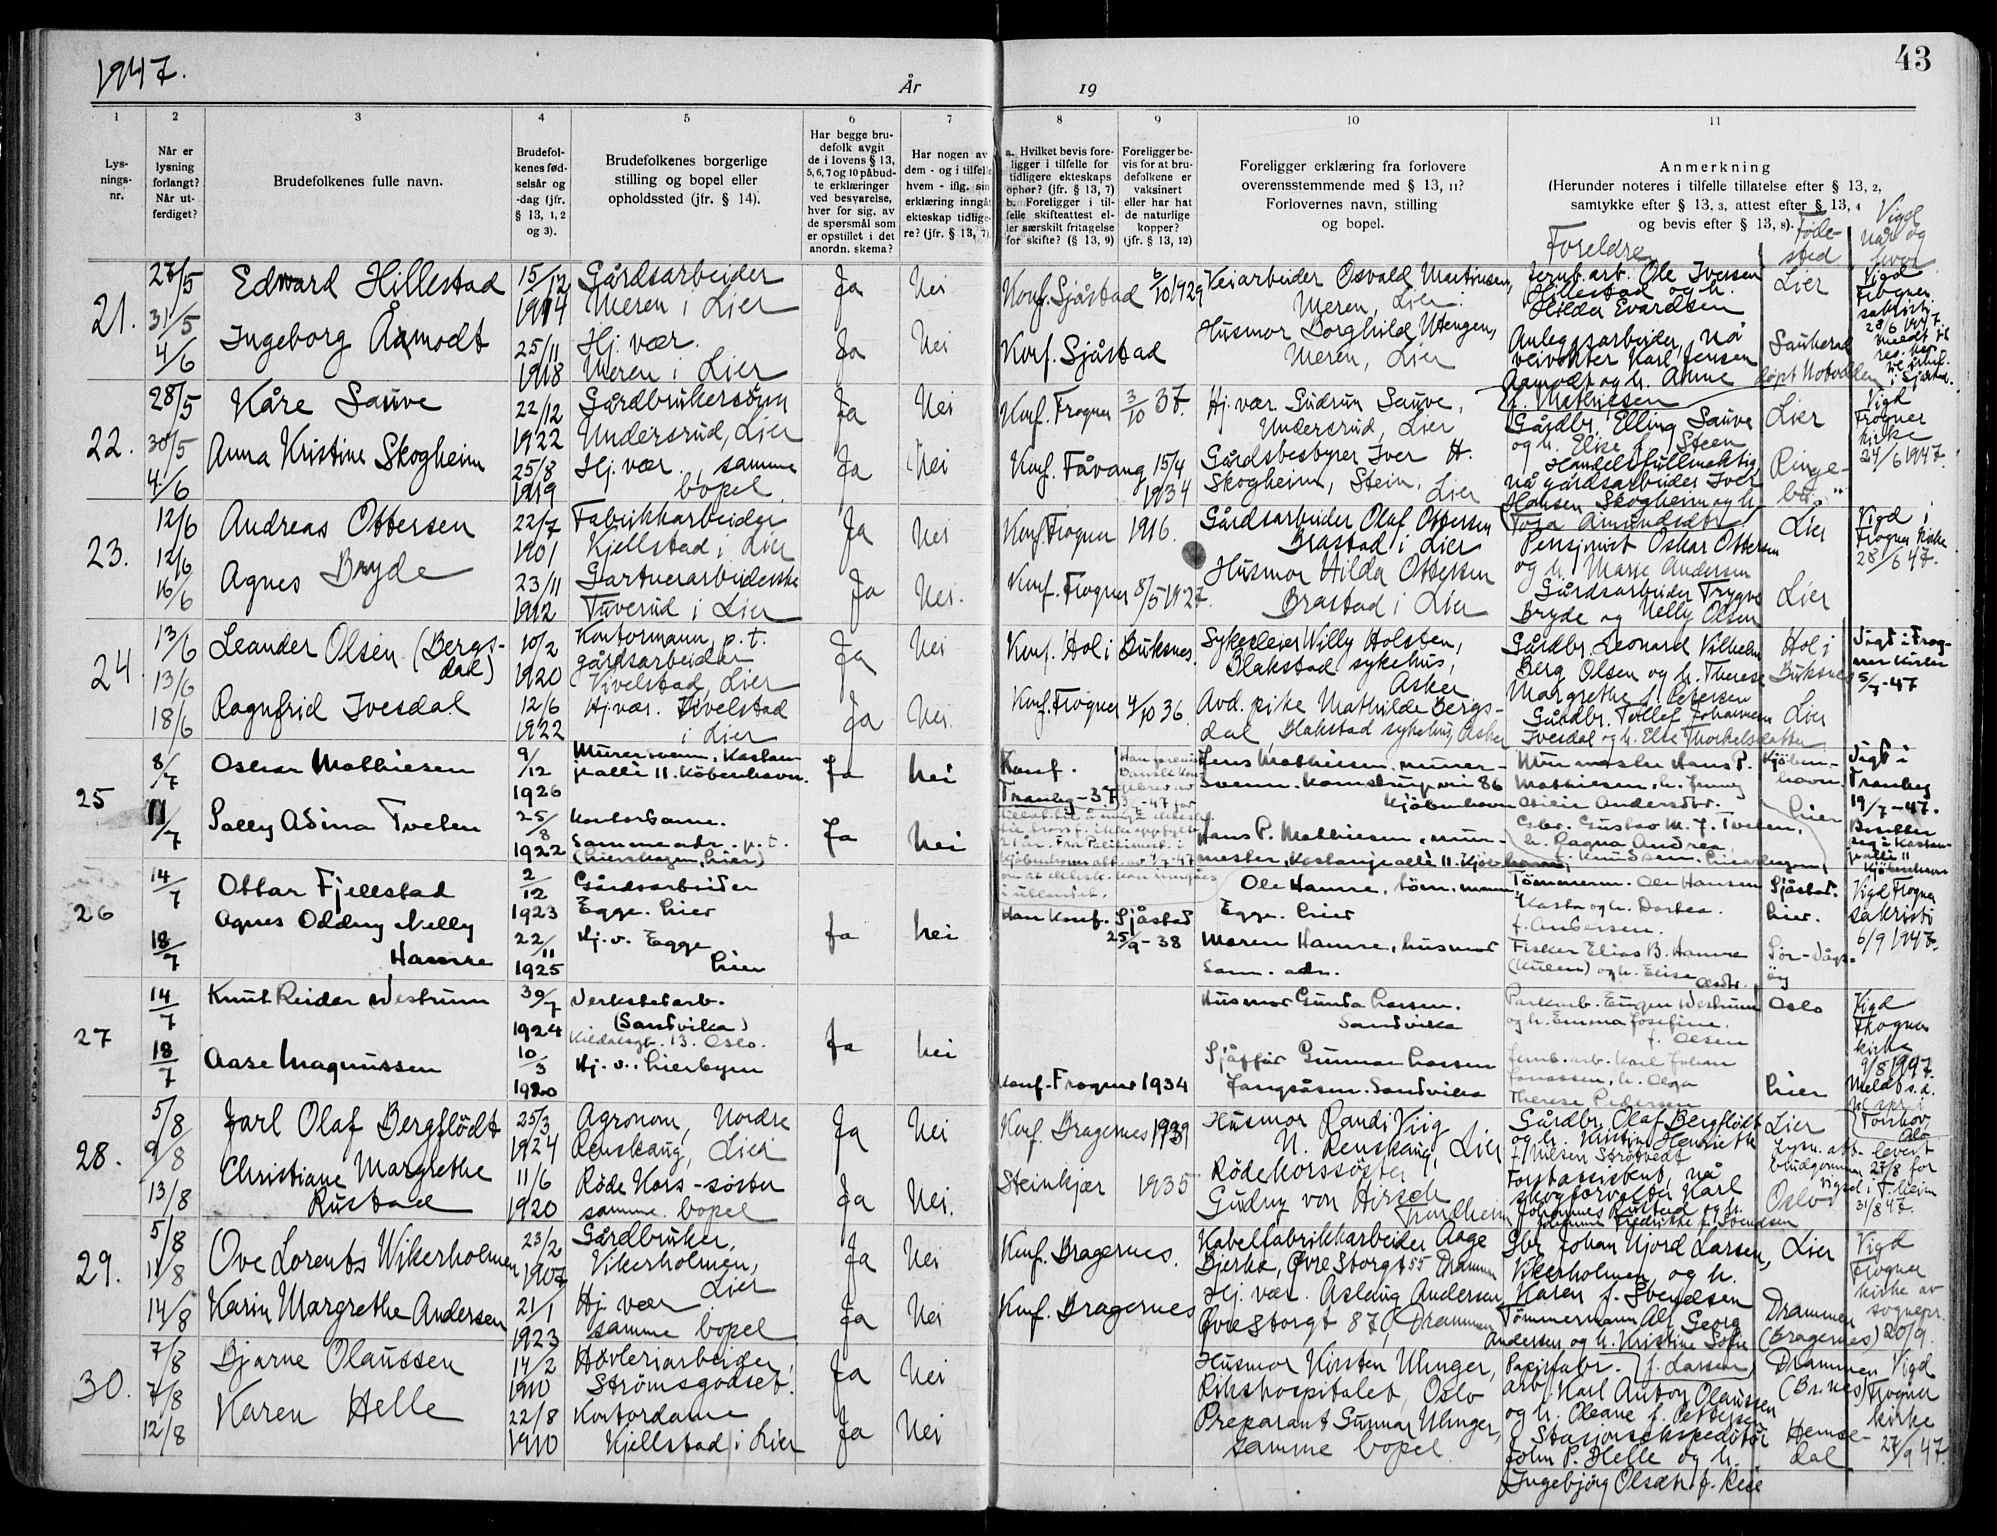 1947.
År
19
43
1
2
3
4
5
6
7
8
9
10
11
Lys-
nings-
nr.
Når er
lysning
forlangt?
Når ut-
ferdiget?
Brudefolkenes fulle navn.
Brudefol-
kenes fød-
selsår og
-dag (jfr.
§ 13, 1, 2
og 3).
Brudefolkenes borgerlige
stilling og bopel eller
opholdssted (jfr. § 14).
Har begge bru-
defolk avgit
de i lovens § 13,
5, 6, 7 og 10 påbud-
te erklæringer
ved besvarelse,
hver for sig, av
de spørsmål som
er opstillet i det
anordn. skema?
Har nogen av
dem - og i tilfelle
hvem - iflg. sin
erklæring inngåt
ekteskap tidlige-
re? (jfr. § 13, 7).
a. Hvilket bevis fore-
ligger i tilfelle for
tidligere ekteskaps
ophør? (jfr. § 13, 7)
b. Foreligger i til-
felle skifteattest el-
ler særskilt fritagelse
for skifte? (§ 13, 9)
Foreligger be-
vis for at bru-
defolkene er
vaksinert
eller har hat
de naturlige
kopper?
(jfr. § 13, 12)
Foreligger erklæring fra forlovere
overensstemmende med § 13, 11?
Forlovernes navn, stilling
og bopel.
Anmerkning
(Herunder noteres i tilfelle tillatelse efter § 13, 2,
samtykke efter § 13, 3, attest efter § 13, 4
og bevis efter § 13, 8).
Foreldre
Føde-
sted
Vigd
når og
hvor
21.
27/5
31/5
4/6
Edward Hillestad
15/12
1914
Gårdsarbeider
Meren i Lier
Ja
Nei
Konf. Sjåstad
6/10 1929
Keiarbeider Osvald Martinsen,
Meren, Lier.
Jernb.arb. Ole Iversen
Hillestad og h.
Hilda Evardsen
Lier
Vigd
Frogner
sakristi
28/6 1947.
meldt til
Ingeborg Åmodt
25/11
1918
Hj. vær.
Meren i Lier
Ja
Nei
Konf. Sjåstad
Husmor Borghild Utengen,
Meren, Lier
Anleggsarbeider, nå
veivokter Karl Jensen
Aamodt og h. Anne
f. Mathiesen
Sauherad
døpt Notodden
22.
28/5
30/5
4/6
Kåre Sauve
22/12
1922
Gårdbrukersønn
Undersrud, Lier
Ja
Nei
Konf. Frogner
3/10 37.
Hj. vær Gudrun Sauve,
Undersrud, Lier
Gårdbr. Elling Sauve
og h. Elise f. Steen
Lier
Vigd
Frogner
kirke
24/6 1947.
Anna Kristine Skogheim
25/8
1919
Hj. vær., samme
bopel
Ja
Nei
Konf. Fåvang
15/4
1934
Gårdsbestyrer Iver H.
Skogheim, Stein, Lier
Handelsfullmektig
nå gårdsarbeider Iver
Hansen Skogheim og h.
Tora Amundsdtr.
Ringe-
bu
23.
12/6
12/6
16/6
Andreas Ottersen
22/7
1901
Fabrikkarbeider
Kjellstad i Lier
Ja
Nei
Konf. Frogner
1916.
Gårdsarbeider Olaf Ottersen
Brastad i Lier
Pensjonist Oskar Ottersen
og h. Marie Andersen
Lier
Vigd i
Frogner kirke
28/6 47.
Agnes Bryde
23/11
1912
Gartnerarbeiderske
Tuverud i Lier
Ja
Nei.
Konf. Frogner
8/5 1927.
Husmor Hilda Ottersen
Brastad i Lier
Gårdsarbeider Trygve
Bryde og Nelly Olsen
Lier
24.
13/6
13/6
18/6
Leander Olsen (Bergs-
dal)
10/2
1920
Kontormann, p.t.
gårdsarbeider
Vivelstad, Lier
Ja
Nei
Konf. Hol i Buksnes.
Sykepleier Willy Holsten,
Blakstad sykehus,
Asker
Gårdbr. Leonard Vilhelm
Berg Olsen og h. Therese
Margrethe f. Petersen
Hol i
Buksnes
Vigd i Frog-
ner kirke
5/7-47
Ragnfrid Ivesdal
12/6
1922
Hj. vær. Vivelstad
i Lier
Ja
Nei
Konf. Frogner
4/10 36.
Avd. pike Mathilde Bergs-
dal, Blakstad sykehus, Asker
Gårdbr. Tollef Johannesen
Ivesdal og h. Else Thorkelsdatter
Lier
25
8/7
11/7
Oskar Mathiesen
9/12
1926
Murersvenn, Kastan-
jealle 11. København.
Ja
Nei
Konf.
Tranby - 37
Jens Mathiesen, murer-
svenn. Kamstrupvei 86
Kjøbenhavn
Murmester Hans P.
Mathiesen, h. Jenny
Andersdtr.
Kjøben-
havn.
Vigd i
Tranby
19/7-47.
Bosetter
seg i Kastan-
jealle 11
Kjøbenhavn
Sally Asina Tveten
25/8
1922
Kontordame.
Samme adr. p.t.
(Lierskogen, Lier)
Ja
Nei
Hans P. Mathiesen, mur-
mester, Kastanjealle 11. Kjøben-
havn.
Gbr. Gustav M. J. Tveten,
h. Ragna Andrea,
f. Knudsen. Lierskogen,
Lier
26
14/7
18/7
Ottar Fjellstad
2/12
1923
Gårdsarbeider
Egge. Lier
Ja
Nei
Han konf. Sjåstad
25/9-38
Ole Hamre, tøm.mann,
Egge. Lier
Tømmerm. Ole Hansen
Kasta og h. Dorthea.
f. Andersen.
Sjåstad.
Lier.
Vigd Frogner
sakristi
6/9 1947.
Agnes Oddny Nelly
Hamre
22/11
1925
Hj. v. Egge
Lier
Maren Hamre, husmor
Sam. adr.
Fisker Elias B. Hamre
(Kulen) og h. Elise
Olsdtr.
Sør-Vågs-
øy
27
14/7
18/7
Knut Reidar Westrum
30/7
1924
Verkstedarb.
(Sandvika)
Kildalsgt. 13. Oslo.
Ja
Nei
Husmor Gunda Larsen.
Sandvika
Parkarb. Eugen Westrum
og h. Emma Josefine.
f. Olsen
Oslo
Vigd
Frogner
kirke
9/8 1947.
Aase Magnussen
10/3
1920
Hj. v., Lierbyen
Konf. Frogner 1934
Sjåfør Gunnar Larsen
Jongsåsen. Sandvika
Jernb. arb. Karl Johan
Jonassen, h. Olga
Therese Pedersen
Lier
28.
5/8
9/8
13/8
Jarl Olaf Bergflødt
25/3
1924
Agronom, Nordre
Renskaug, Lier
Ja
Nei
Konf. Bragernes 1939
Husmor Randi Viig
N. Renskaug, Lier
Gårdbr. Olaf Bergflødt
og h. Kristine Henriette
f. Nilsen Strøtvedt
Lier
Lysn. att. levert
brudgommen 27/8 for
vigsel i T.heim
31/8 47.
Christiane Margrethe
Rustad
11/6
1920
Røde Kors-søster
samme bopel
Ja
Nei.
Steinkjær
1935
Røde Korssøster
Gudrun von Hirsch
Trondheim
Forstassistent, nå
skogforvalter Karl
Johannes Rustad og h.
Johanne Fredrikke f. Svendsen
Oslo
29.
5/8
11/8
14/8
Ove Lorents Wikerholmen
23/2
1907
Gårdbruker,
Vikerholmen,
Lier
Ja
Nei
Konf. Bragernes.
Kabelfabrikkarbeider Aage
Bjerke, Øvre Storgt 55 Drammen
Gbr. Johan Njord Larsen,
Vikerholmen, og h.
Karen f. Svendsen
Lier
Vigd
Frogner
kirke av
sognepr.
20/9.
Karin Margrethe Andersen
21/1
1923
Hj. vær
samme bopel
Ja
Nei
Konf. Bragernes
Hj. vær. Aslaug Andersen
Øvre Storgt 87 C, Drammen
Tømmermann Alf Georg
Andersen og h. Kristine Sofie
f. Larsen
Drammen
(Bragernes)
30.
7/8
7/8
12/8
Bjarne Olaussen
14/2
1910
Høvleriarbeider,
Strømsgodset.
Ja
Nei
Husmor Kirsten Unger,
Rikshospitalet, Oslo
Papirfabr.
arb. Karl Anton Olaussen
og h. Oleane f. Pettersen
Drammen
(Br.nes)
Vigd
Frogner
kirke
27/9 47.
Karen Helle
22/8
1910
Kontordame
Kjellstad i Lier
Ja
Nei
Preparant Gunnar Unger,
samme bopel
Stasjonsekspeditør
John P. Helle og h.
Ingebjørg Olsdtr f. Reie
Hemse-
dal